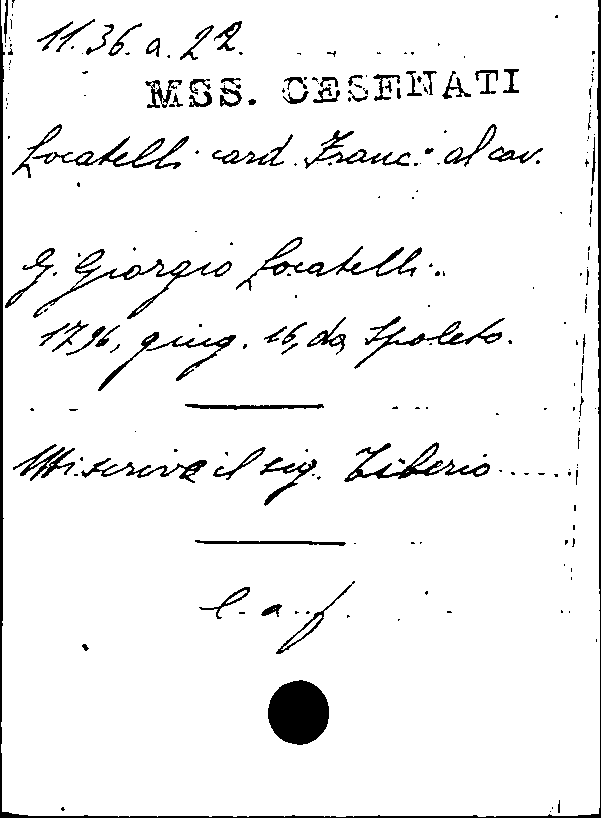 11.36.a.22.
MSS. CESENATI
Locatelli card. Franc.º al cav.
G. Giorgio Locatelli.
1796, giug. 16, da Spoleto.
Mi scrive il sig. Tiberio.....
l. a. f.